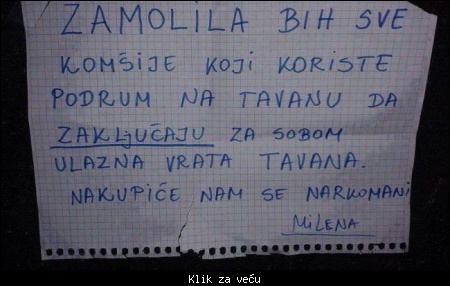 ZAMOLILA BIH SVE
KOMŠIJE KOJI KORISTE
PODRUM NA TAVANU DA
ZAKLJUČAJU ZA SOBOM
ULAZNA VRATA TAVANA.
NAKUPIĆE NAM SE NARKOMANI
MILENA
Klik za veću